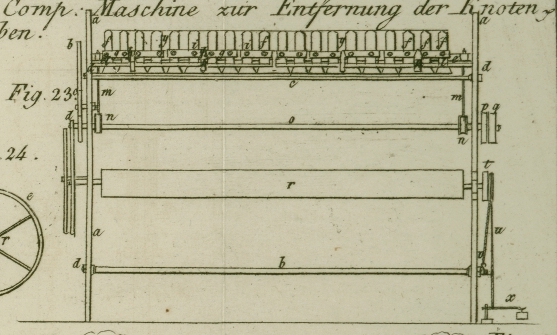 Comp: Maschine zur Entfernung der Knoten
ben.
a a
b
d
c
Fig. 23.
m m
d o p q
n n
24.
t
r
e
r
a u
d b v
x